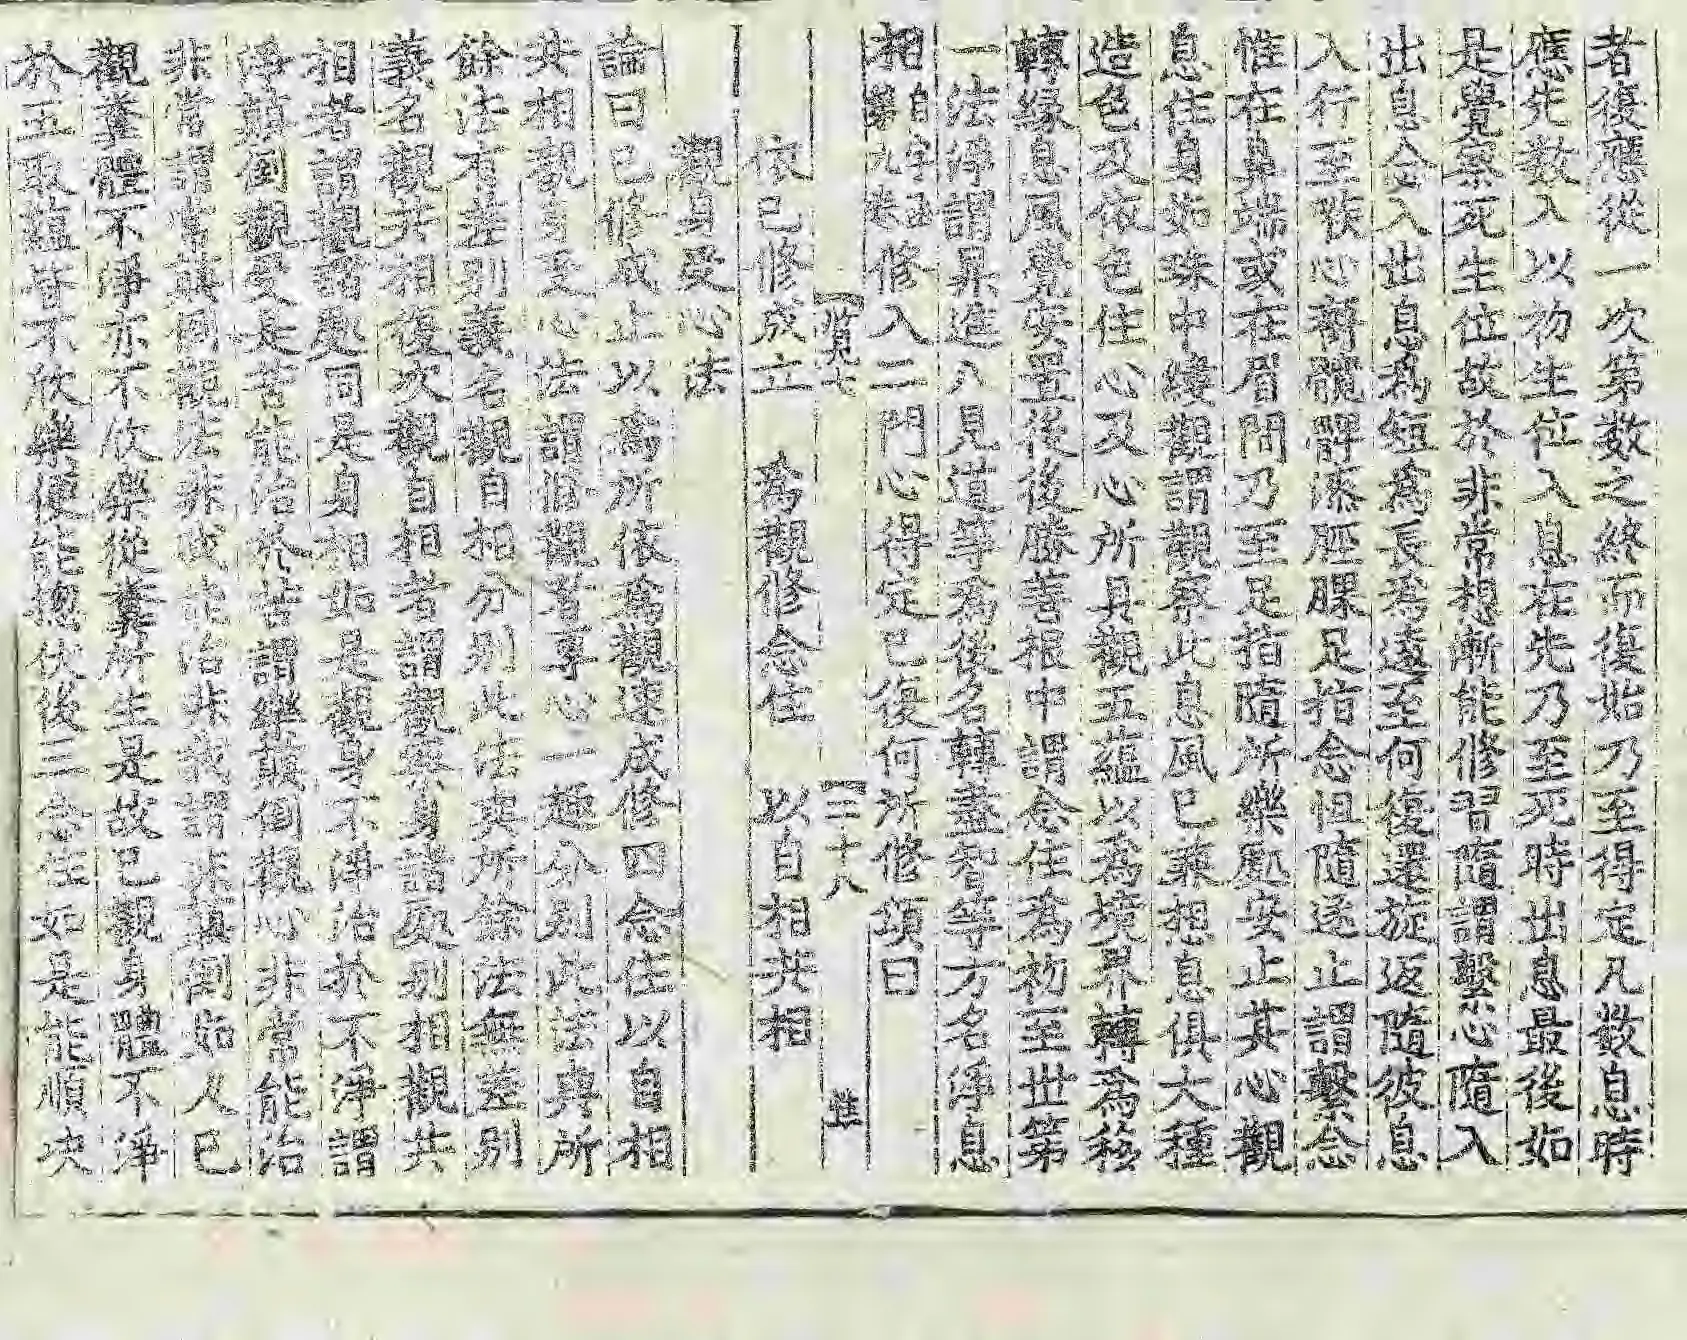 者復應從一次第數之終而復始乃至得定凡數息時
應先數入以初生位入息在先乃至死時出息最後如
是覺察死生位故於非常想漸能修習隨謂繫心隨入
出息念入出息為短為長為遠至何復還旋返隨彼息
入行至喉心𦜝髖髀膝脛踝足指念恒隨逐止謂繫念
惟在鼻端或在眉間乃至足指隨所樂處安止其心觀
息住身如珠中縷觀謂觀察此息風已兼想息俱大種
造色及依色住心又心所具觀五蘊以為境界轉為移
轉緣息風覺安置後後勝善根中謂念住為初至世第
一法淨謂昇進入見道等為後名轉盡智等方名淨息
相 自字函第九卷 修入二門心得定已復何所修頌曰
質七 三十八
依已修成立 為觀修念住 以自相共相
觀身受心法
論曰已修成止以為所依為觀速成修四念住以自相
共相觀身受心法謂脩觀者專心一趣分別此法與所
餘法有差別義名觀自相分別此法與所餘法無差別
義名觀共相復次觀自相者謂觀察身諸處別相觀共
相者謂觀諸處同是身相如是觀身不淨治於不淨謂
淨顛倒觀受是苦能治於苦謂樂顛倒觀心非常能治
非常謂常顛倒觀法非我能治非我謂非顛倒如人已
觀糞體不淨亦不欣樂從糞所生是故已觀身體不淨
於五取蘊皆不欣樂便能摠伏後三念住如是能順決